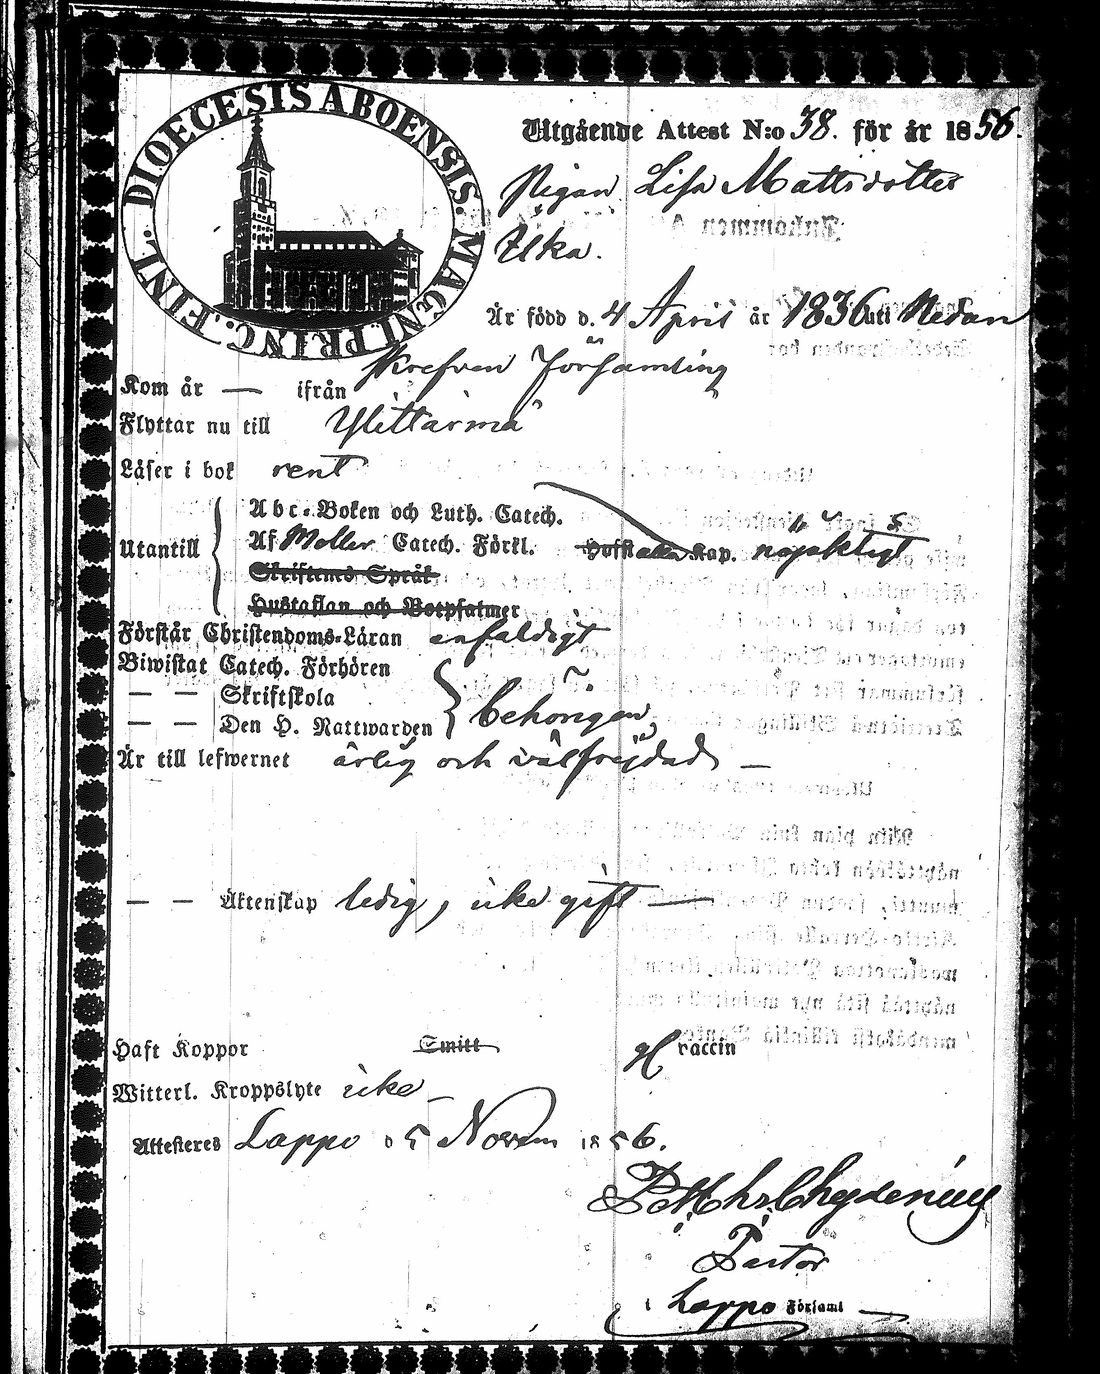 DIOECESIS ABOENSIS. MAGNI PRINC. FINL.
Utgående Attest N:o 38. för år 1856.
Pigan Lisa Mattsdotter
Ulka.
Är född d. 4 April år 1836 uti Nedan
skrefven församling
Kom år — ifrån
Flyttar nu till Ylittärmä
Läser i bok rent
Utantill
Abc-Boken och Luth. Catech.
Af Möller Catech. Förkl. Hofst alla Kap. nöjaktigt
Skriftens Språk
Hustaflan och Botpsalmer
Förstår Christendoms-Läran enfaldigt
Biwistat Catech. Förhören
— — Skriftskola
— — Den H. Nattwarden behörigen,
Är till lefwernet ärlig och välfrejdad —
— — Äktenskap ledig, icke gift —
Haft Koppor Smitt vaccin
Witterl. Kroppslyte icke —
Attesteres Lappo d 5 Novem 1856.
Chydenius
Pastor
i Lappo Församl